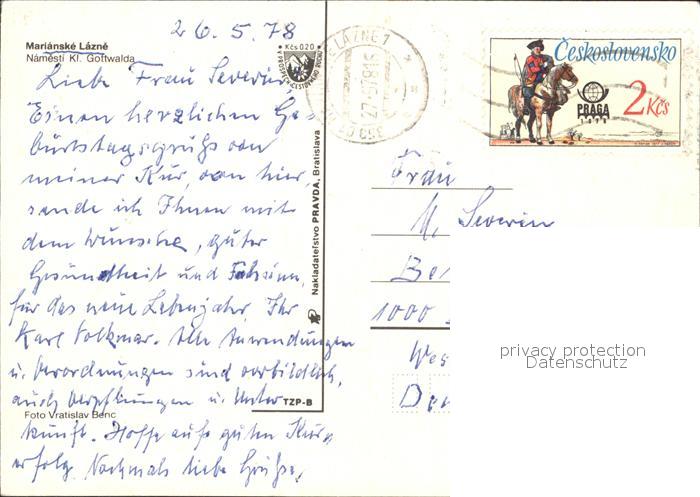 26.5.78
Mariánské Lázně
Náměstí Kl. Gottwalda
Liebe Frau Severin,
Einen herzlichen Ge-
burtstagsgruß von
meiner Kur, von hier,
sende ich Ihnen mit
dem Wunsche, guter
Gesundheit und Frohsinn,
für das neue Lebensjahr, Ihr
Karl Volkmar. Alle Anwendungen
u. Verordnungen sind vorbildlich,
auch Verpflegungen u. Unter
kunft. Hoffe aufs guten Kur
erfolg. Nochmals liebe Grüße,
Foto Vratislav Benc
TZP-B
Nakladateľstvo PRAVDA, Bratislava
Kčs 0,20
LÁZNĚ 1
27.-5.78
353 01
Československo
2 Kčs
PRAGA
1978
Frau
M. Severin
Be
1000
Wes
privacy protection
Datenschutz